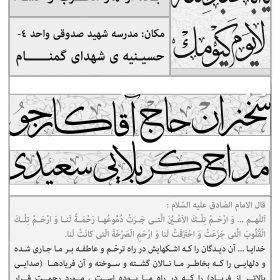 لایوم کیومک
مکان: مدرسه شهید صدوقی واحد ٤-
حسینیه ی شهدای گمنام
سخنران حاج آقا کارجو
مداح کربلایی سعیدی
قال الامام الصّادق علیه السّلام :
اَللّهم ... وَ ارْحَمْ تِلْكَ الاَعْیُنَ الَّتـی جَـرَتْ دُمُوعُهـا رَحْمَـةً لَنـا وَ ارْحَـمْ تِلْـكَ
الْقُلُوبَ الَّتی جَزَعَتْ وَ احْتَرَقَتْ لَنا وَ ارْحَمِ الصَّرْخَةَ الَّتی كانَتْ لَنا.
خدایا ... آن دیدگان را که اشکهایش در راه ترحم و عاطفه بر ما جاری شده
و دلهایی را که بخاطر ما نالان گشته و سوخته و آن فریادها (صدایی
بالاتر از فریاد) را که در راه ما بوده است ، مورد رحمت قرار